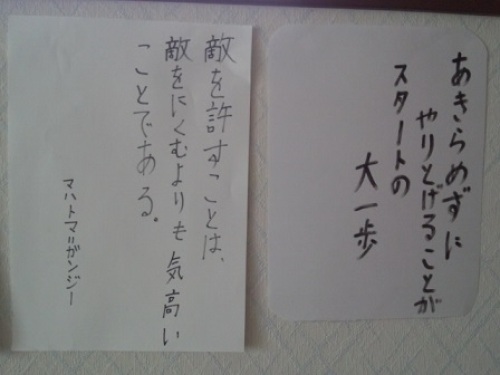 あきらめずに
やりとげることが
スタートの
大一歩
敵を許すことは、
敵をにくむよりも気高い
ことである。
マハトマ=ガンジー